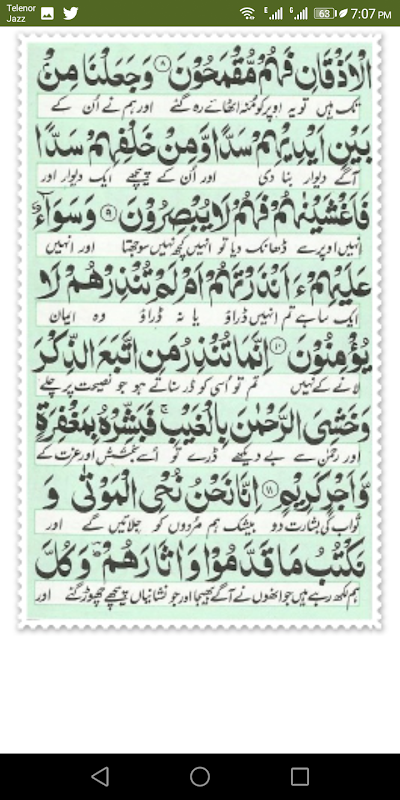 Telenor
Jazz
E
G
63
7:07 PM
الۡاَذۡقَانِ فَهُمۡ مُّقۡمَحُوۡنَ ۸ وَجَعَلۡنَا مِنۡۢ
تک ہیں تو یہ اوپر کو منہ اٹھائے رہ گئے اور ہم نے اُن کے
بَيۡنِ اَيۡدِيۡهِمۡ سَدًّا وَّمِنۡ خَلۡفِهِمۡ سَدًّا
آگے دیوار بنا دی اور اُن کے پیچھے ایک دیوار اور
فَاَغۡشَيۡنٰهُمۡ فَهُمۡ لَا يُبۡصِرُوۡنَ ۹ وَسَوَآءٌ
انہیں اوپر سے ڈھانک دیا تو انہیں کچھ نہیں سوجھتا اور انہیں
عَلَيۡهِمۡ ءَاَنۡذَرۡتَهُمۡ اَمۡ لَمۡ تُنۡذِرۡهُمۡ لَا
ایک سا ہے تم انہیں ڈراؤ یا نہ ڈراؤ وہ ایمان
يُؤۡمِنُوۡنَ ۱۰ اِنَّمَا تُنۡذِرُ مَنِ اتَّبَعَ الذِّكۡرَ
لانے کے نہیں تم تو اُسی کو ڈر سناتے ہو جو نصیحت پر چلے
وَخَشِىَ الرَّحۡمٰنَ بِالۡغَيۡبِ ۚ فَبَشِّرۡهُ بِمَغۡفِرَةٍ
اور رحمٰن سے بے دیکھے ڈرے تو اُسے بخشش اور عزت کے
وَّاَجۡرٍ كَرِيۡمٍ ۱۱ اِنَّا نَحۡنُ نُحۡىِ الۡمَوۡتٰى وَ
ثواب کی بشارت دو بیشک ہم مُردوں کو جِلائیں گے اور
نَكۡتُبُ مَا قَدَّمُوۡا وَاٰثَارَهُمۡ ؕ وَكُلَّ
ہم لکھ رہے ہیں جو انھوں نے آگے بھیجا اور جو نشانیاں پیچھے چھوڑ گئے اور